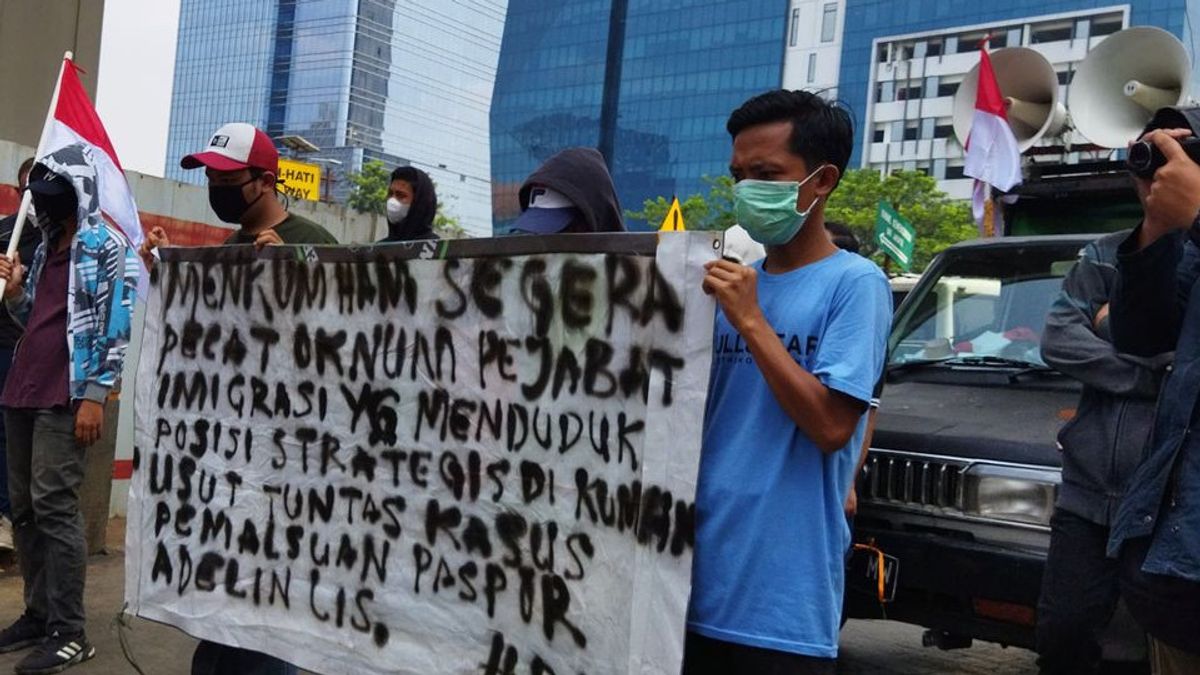 MENKUMHAM SEGERA
PECAT OKNUM PEJABAT
IMIGRASI YG MENDUDUK
POSISI STRATEGIS DI KUMHAM
USUT TUNTAS KASUS
PEMALSUAN PASPOR
ADELIN LIS.
WAY